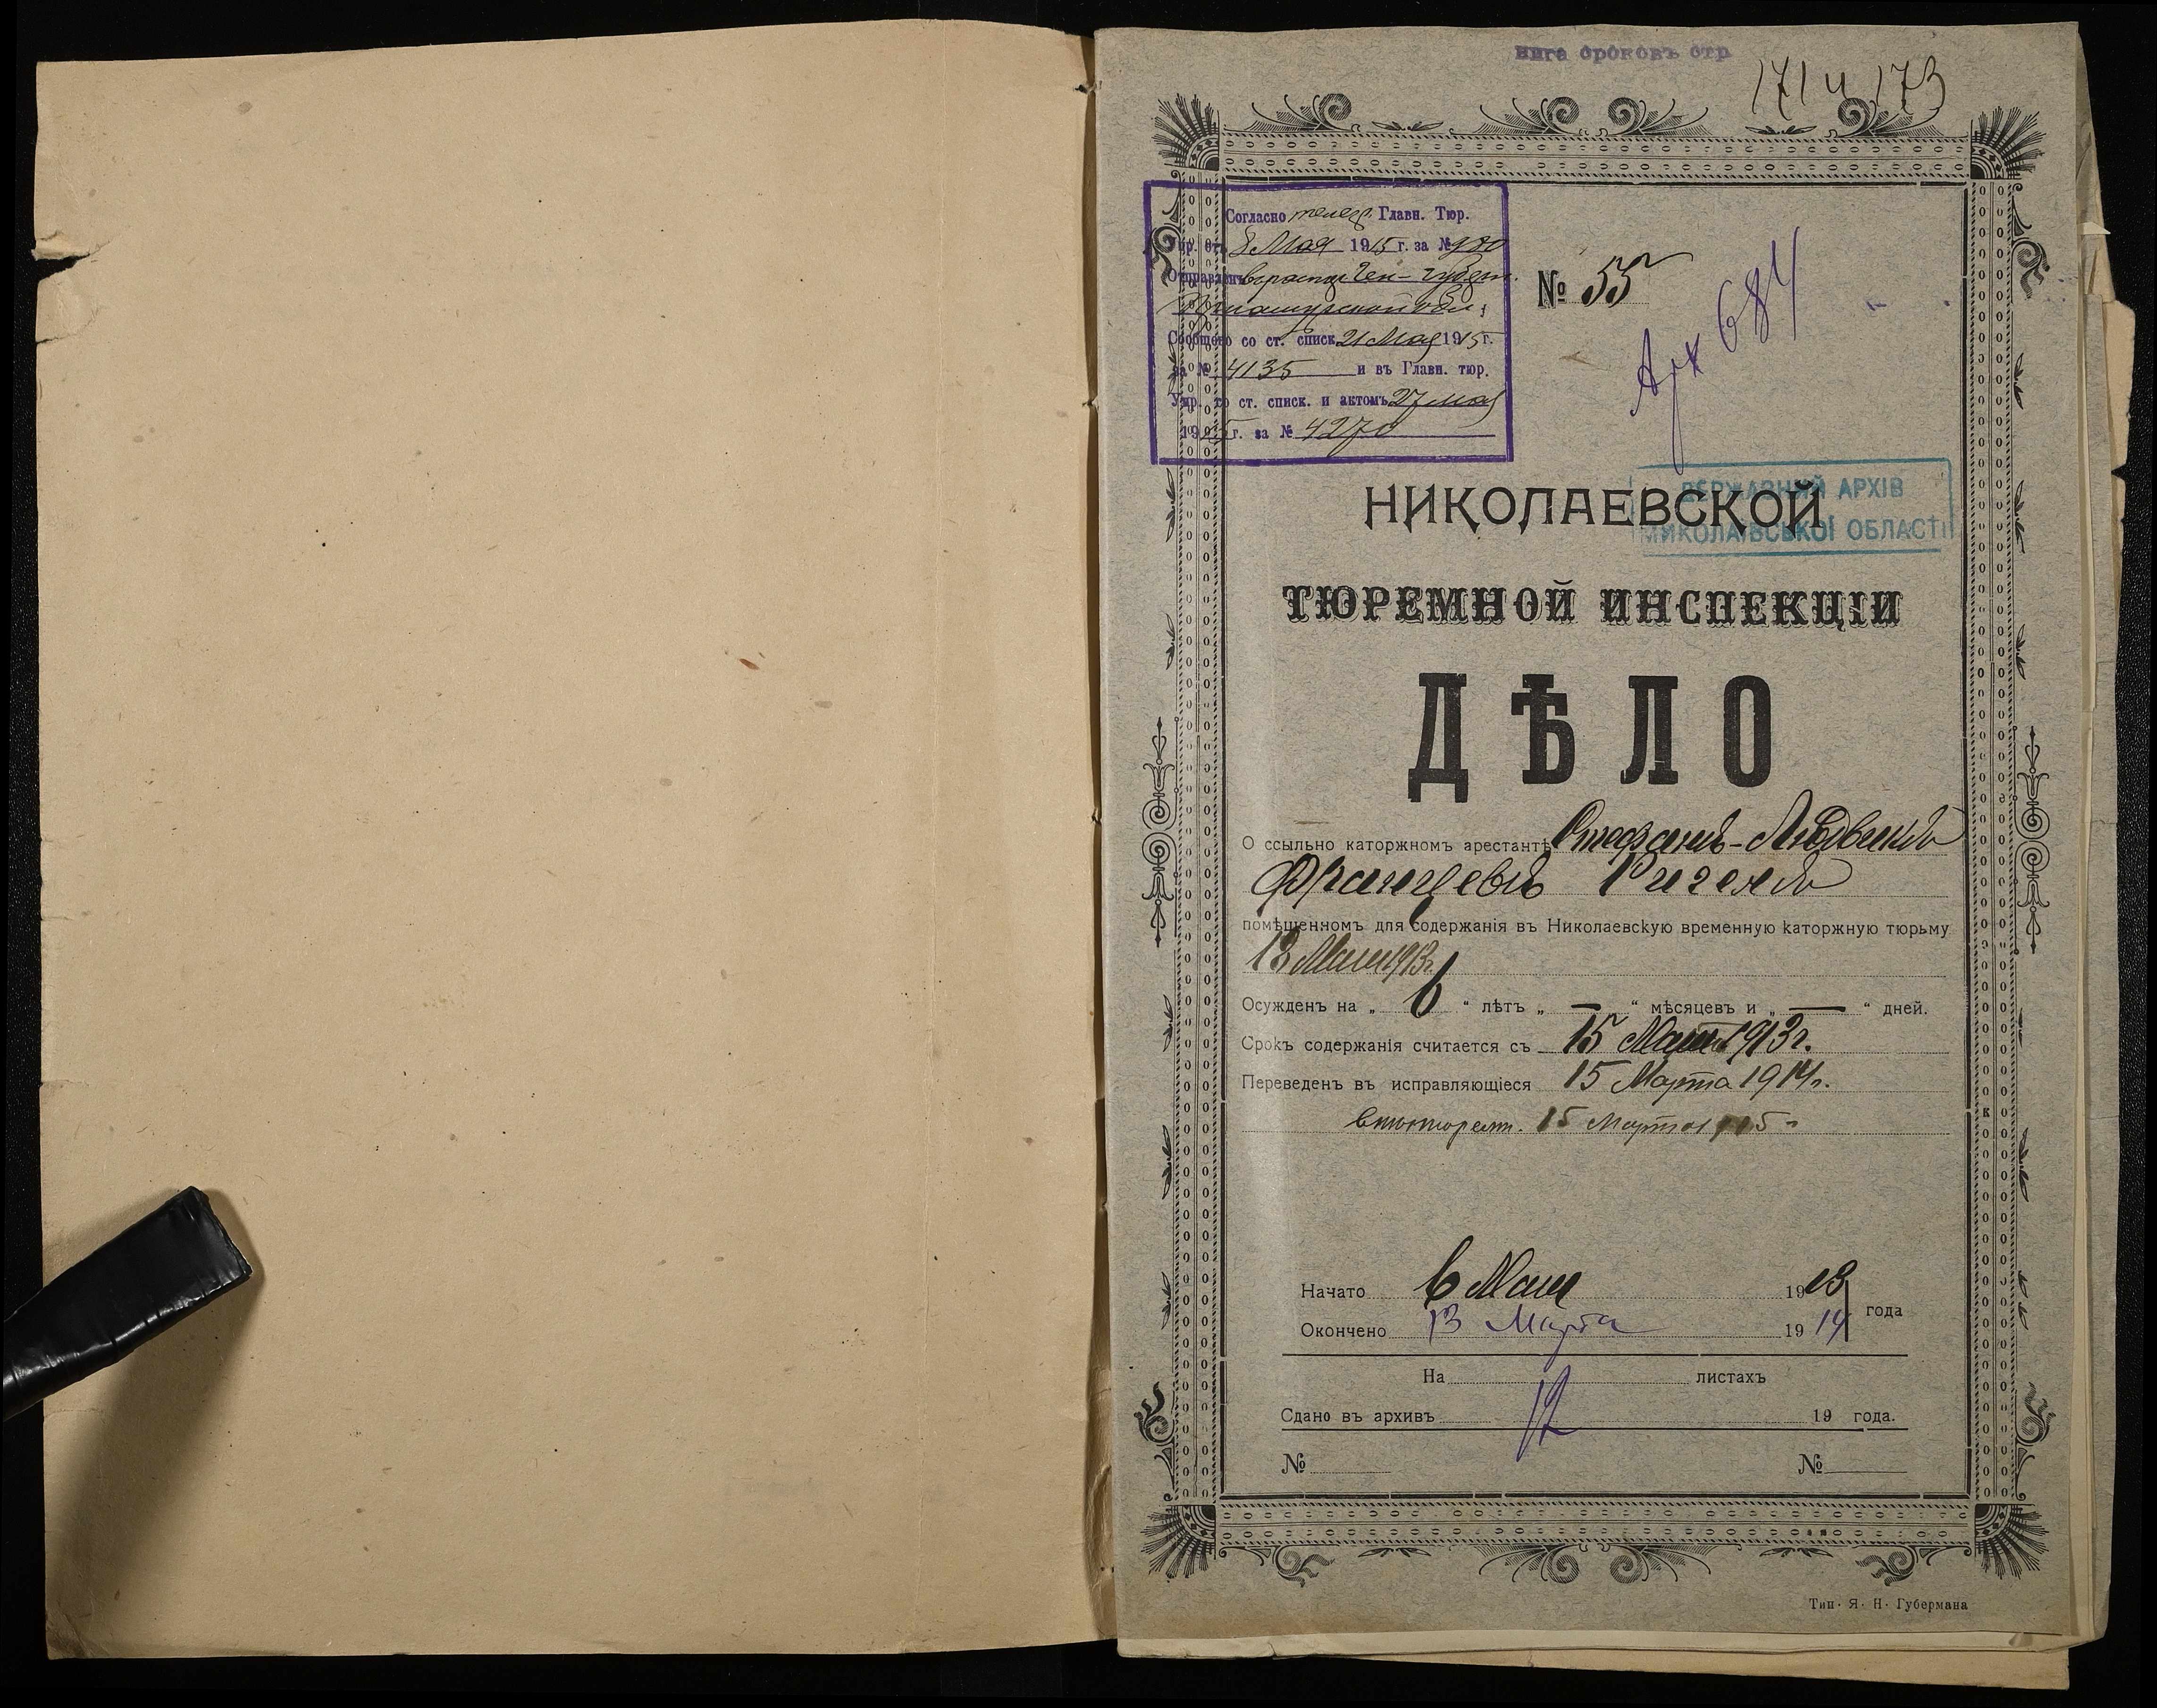 нига сроковъ стр
171 и 173
Согласно телегр. Главн. Тюр.
Упр. отъ 8 Мая 1915 г. за №
Отправленъ в распор Ген-Губерн.
обл.
Сообщено со ст. списк. 21 Мая 1915 г.
за № 4135 и въ Главн. тюр.
Упр. со ст. списк. и актомъ 27 мая
1915 г. за № 4270
№ 55
Арх 684
ДЕРЖАВНИЙ АРХІВ
МИКОЛАЇВСЬКОЇ ОБЛАСТІ
НИКОЛАЕВСКОЙ
ТЮРЕМНОЙ ИНСПЕКЦІИ
ДѢЛО
О ссыльно каторжномъ арестантѣ Стефанѣ-Людвикѣ
Францевѣ
помѣщенномъ для содержанія въ Николаевскую временную каторжную тюрьму
18 Мая 1913 г.
Осужденъ на „ 6 “ лѣтъ „ — “ мѣсяцевъ и „ — “ дней.
Срокъ содержанія считается съ 15 Марта 1913 г.
Переведенъ въ исправляющіеся 15 Марта 1914 г.
15 Марта 1915 г
Начато 6 Мая 1913
года
Окончено 13 Марта 1914
На листахъ
Сдано въ архивъ 19 года.
№ №
Тип. Я. Н. Губермана